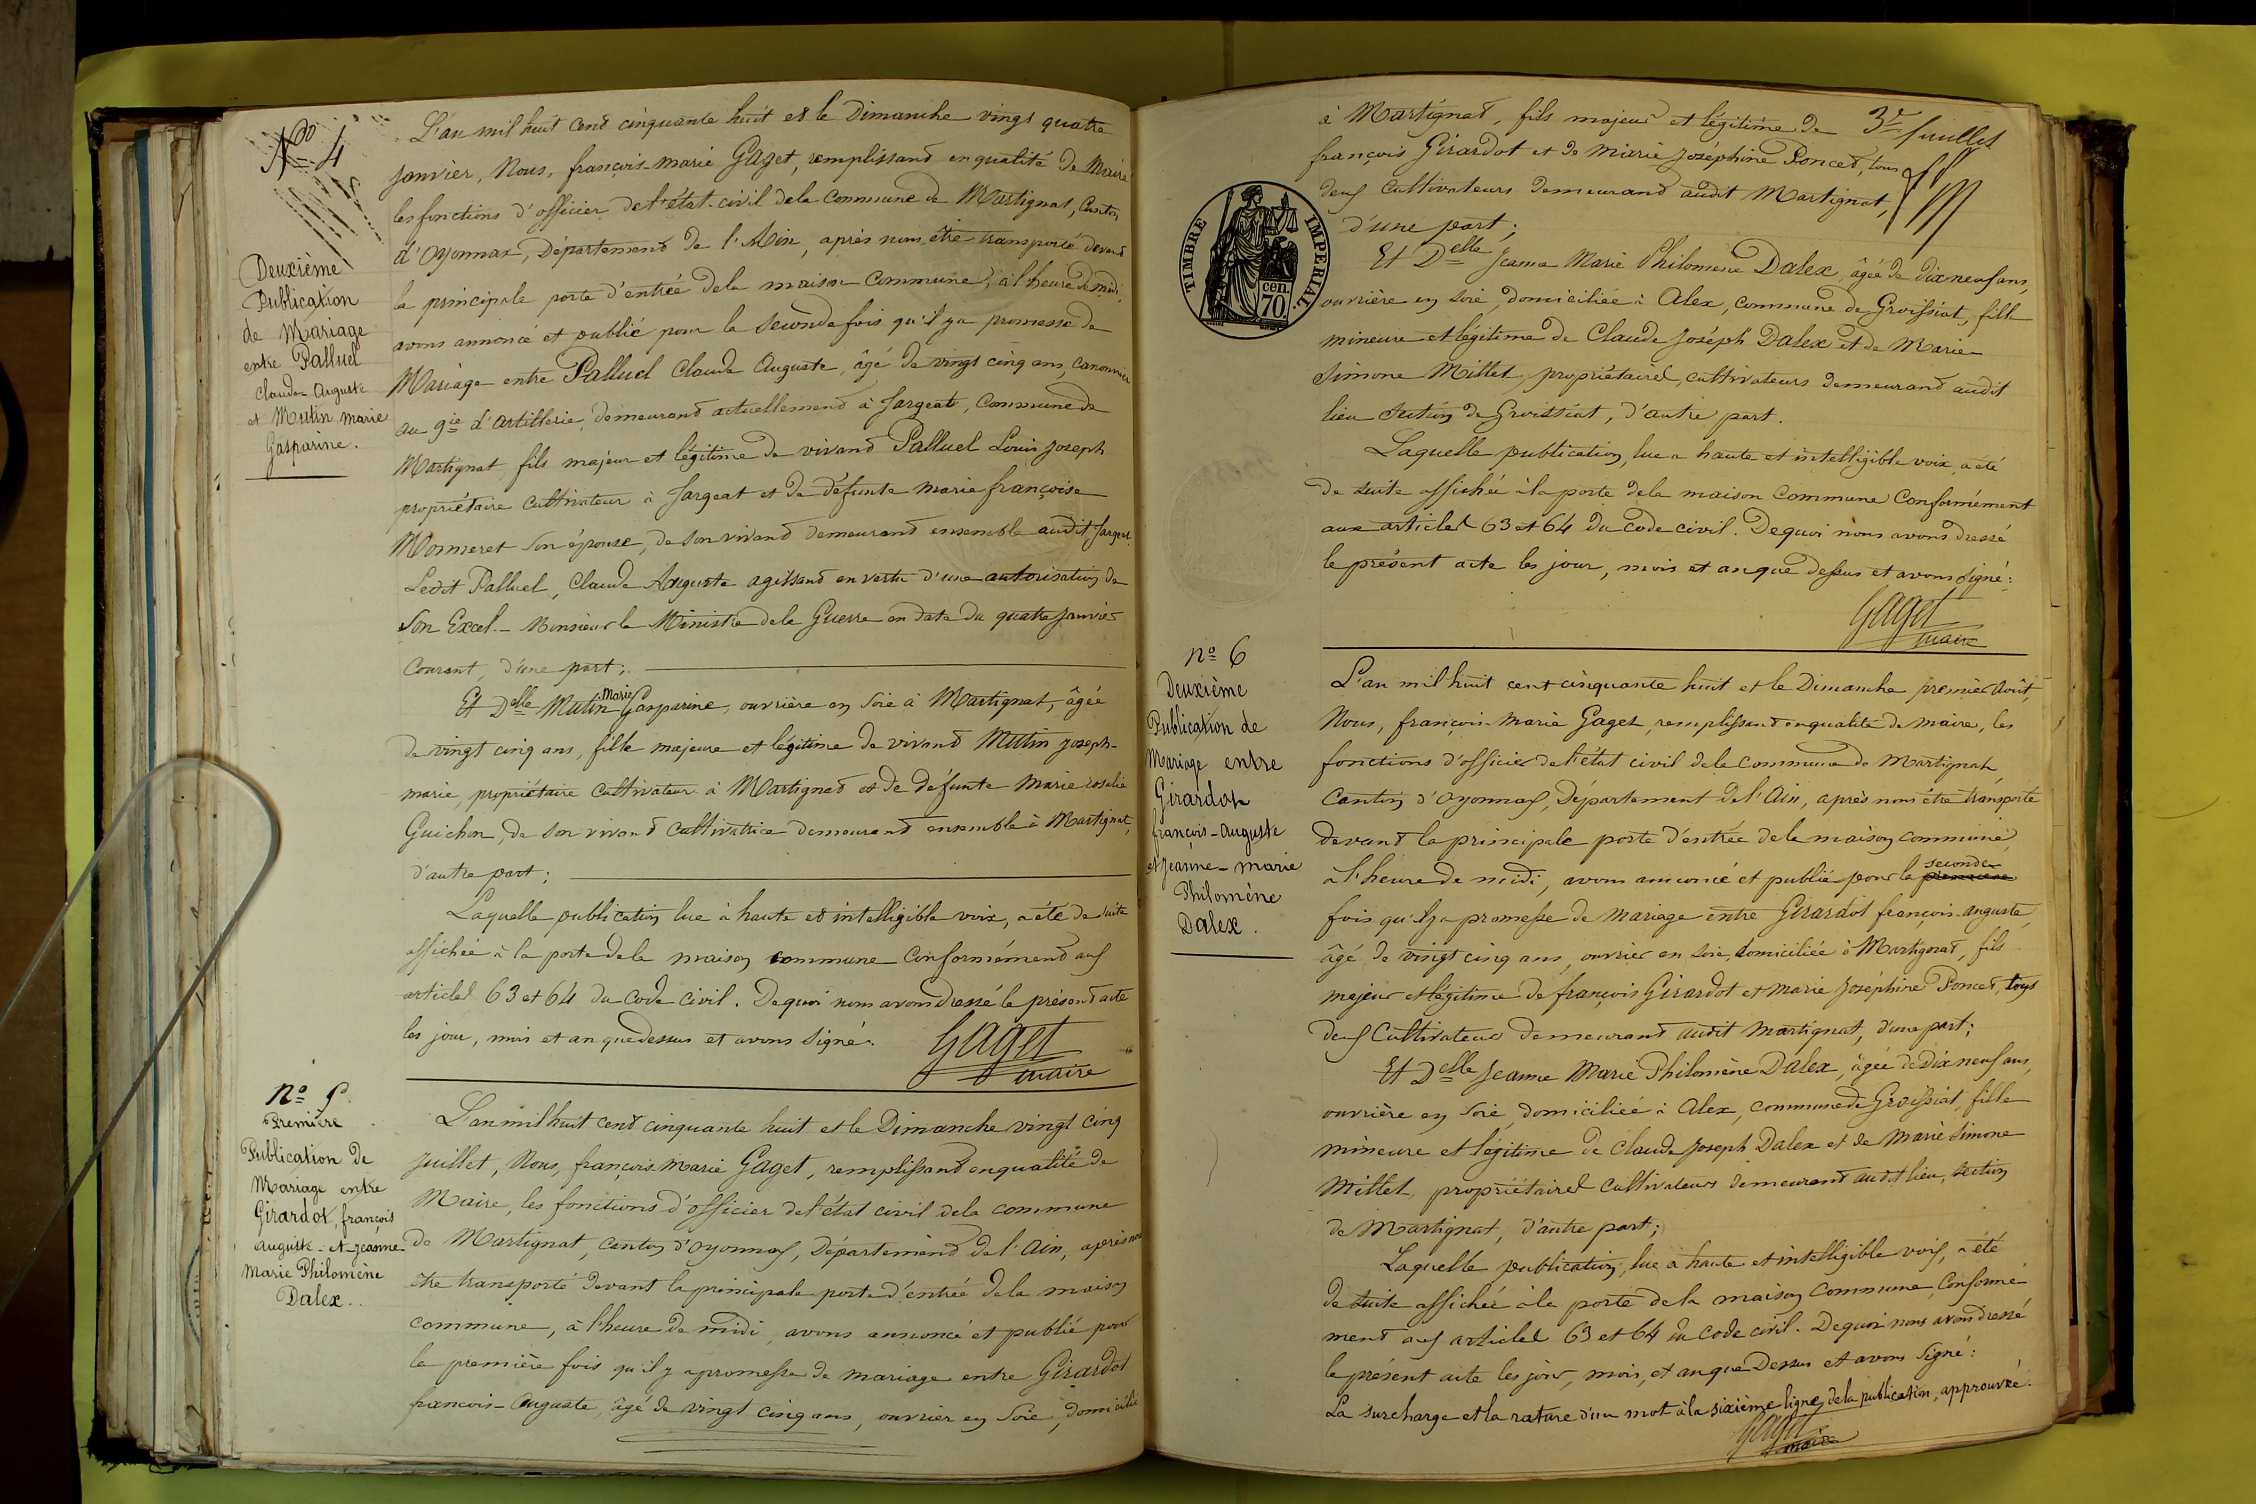 No 4
Deuxième
Publication
de Mariage
entre Palluel
Claude Auguste
et Mutin Marie
Gasparine.
L'an mil huit cent cinquante huit et le Dimanche vingt quatre
Janvier, Nous, françois-marie Gaget, remplissant en qualité de Maire
les fonctions d'officier de l'état-civil dela Commune de Martignat, Canton
d'Oyonnax, Département de l'Ain, après nous être transporté devant
la principale porte d'entrée dela maison Commune, à l'heure de midi,
avons annoncé et publié pour la Seconde fois qu'il y a promesse de
Mariage entre Palluel Claude Auguste, âgé de vingt cinq ans, canonnier
au 9ie d'artillerie, demeurant actuellement à Sargeat, Commune de
Martignat, fils majeur et légitime de vivant Palluel Louis Joseph
propriétaire cultivateur à Sargeat et de défunte marie françoise
Monneret son épouse, de son vivant demeurant ensemble audit Sargeat.
Ledit Palluel, Claude Auguste agissant en vertu d'une autorisation de
Son Excel. Monsieur le Ministre dela Guerre en date du quatre janvier
Courant, d'une part;
Et Delle Mutin Marie Gasparine, ouvrière en Soie à Martignat, âgée
de vingt cinq ans, fille majeure et légitime de vivant Mutin Joseph-
marie, propriétaire Cultivateur à Martignat et de défunte Marie rosalie
Guichon, de son vivant Cultivatrice demeurant ensemble à Martignat,
d'autre part;
Laquelle publication lue à haute et intelligible voix, a été de suite
affichée à la porte dela maison commune Conformément aux
articles 63 et 64 du Code civil. De quoi nous avons dressé le présent acte
les jour, mois et an que dessus et avons Signé.
Gaget
maire
No 5
Première
Publication de
Mariage entre
Girardot, françois
Auguste et Jeanne
Marie Philomène
Dalex.
L'an mil huit cent cinquante huit et le Dimanche vingt cinq
Juillet, Nous, françois Marie Gaget, remplissant en qualité de
Maire, les fonctions d'officier de l'état civil dela commune
de Martignat, canton d'Oyonnax, Département de l'Ain, après nous
être transporté devant la principale porte d'entrée dela maison
commune, à l'heure de midi, avons annoncé et publié pour
la première fois qu'il y a promesse de mariage entre Girardot
françois-Auguste, âgé de vingt cinq ans, ouvrier en Soie, domicilié
3e feuillet
à Martignat, fils majeur et légitime de
françois Girardot et de Marie Joséphine Poncet, tous
deux cultivateurs demeurant audit Martignat,
d'une part;
TIMBRE IMPÉRIAL.
cen.
70.
Et Delle Jeanne Marie Philomène Dalex, âgée de dix neuf ans,
ouvrière en soie, domiciliée à Alex, commune de Groissiat, fille
mineure et légitime de Claude Joséph Dalex et de Marie
Simone Millet, propriétaires, cultivateurs demeurant audit
lieu Section de Groissiat, d'autre part.
Laquelle publication, lue à haute et intelligible voix, a été
de suite affichée à la porte dela maison Commune Conformément
aux articles 63 et 64 du Code civil. De quoi nous avons dressé
le présent acte les jour, mois et an que dessus et avons signé:
Gaget
maire
no 6
Deuxième
Publication de
Mariage entre
Girardot
françois-Auguste
et Jeanne-Marie
Philomène
Dalex.
L'an mil huit cent cinquante huit et le Dimanche premier Août,
Nous, françois Marie Gaget, remplissant en qualité de maire, les
fonctions d'officier de l'état civil dela commune de Martignat,
Canton d'Oyonnax, Département de l'Ain, après nous être transporté
devant la principale porte d'entrée dela maison commune,
à l'heure de midi, avons annoncé et publié pour la première seconde
fois qu'il y a promesse de mariage entre Girardot françois-Auguste,
âgé de vingt cinq ans, ouvrier en soie, domiciliée à Martignat, fils
majeur et légitime de françois Girardot et Marie Joséphine Poncet, tous
deux Cultivateurs demeurant audit Martignat, d'une part;
Et Delle Jeanne Marie Philomène Dalex, âgée de Dix neuf ans,
ouvrière en Soie, domiciliée à Alex, commune de Groissiat, fille
mineure et légitime de Claude Joseph Dalex et de Marie Simone
Millet, propriétaires Cultivateurs demeurant audit lieu, section
de Martignat, d'autre part;
Laquelle publication, lue à haute et intelligible voix, a été
de suite affichée à la porte dela maison Commune, Conformé-
ment aux articles 63 et 64 du Code civil. De quoi nous avons dressé
le présent acte les jour, mois, et an que Dessus et avons Signé:
La surcharge et la rature d'un mot à la sixième ligne de la publication, approuvée.
Gaget
maire